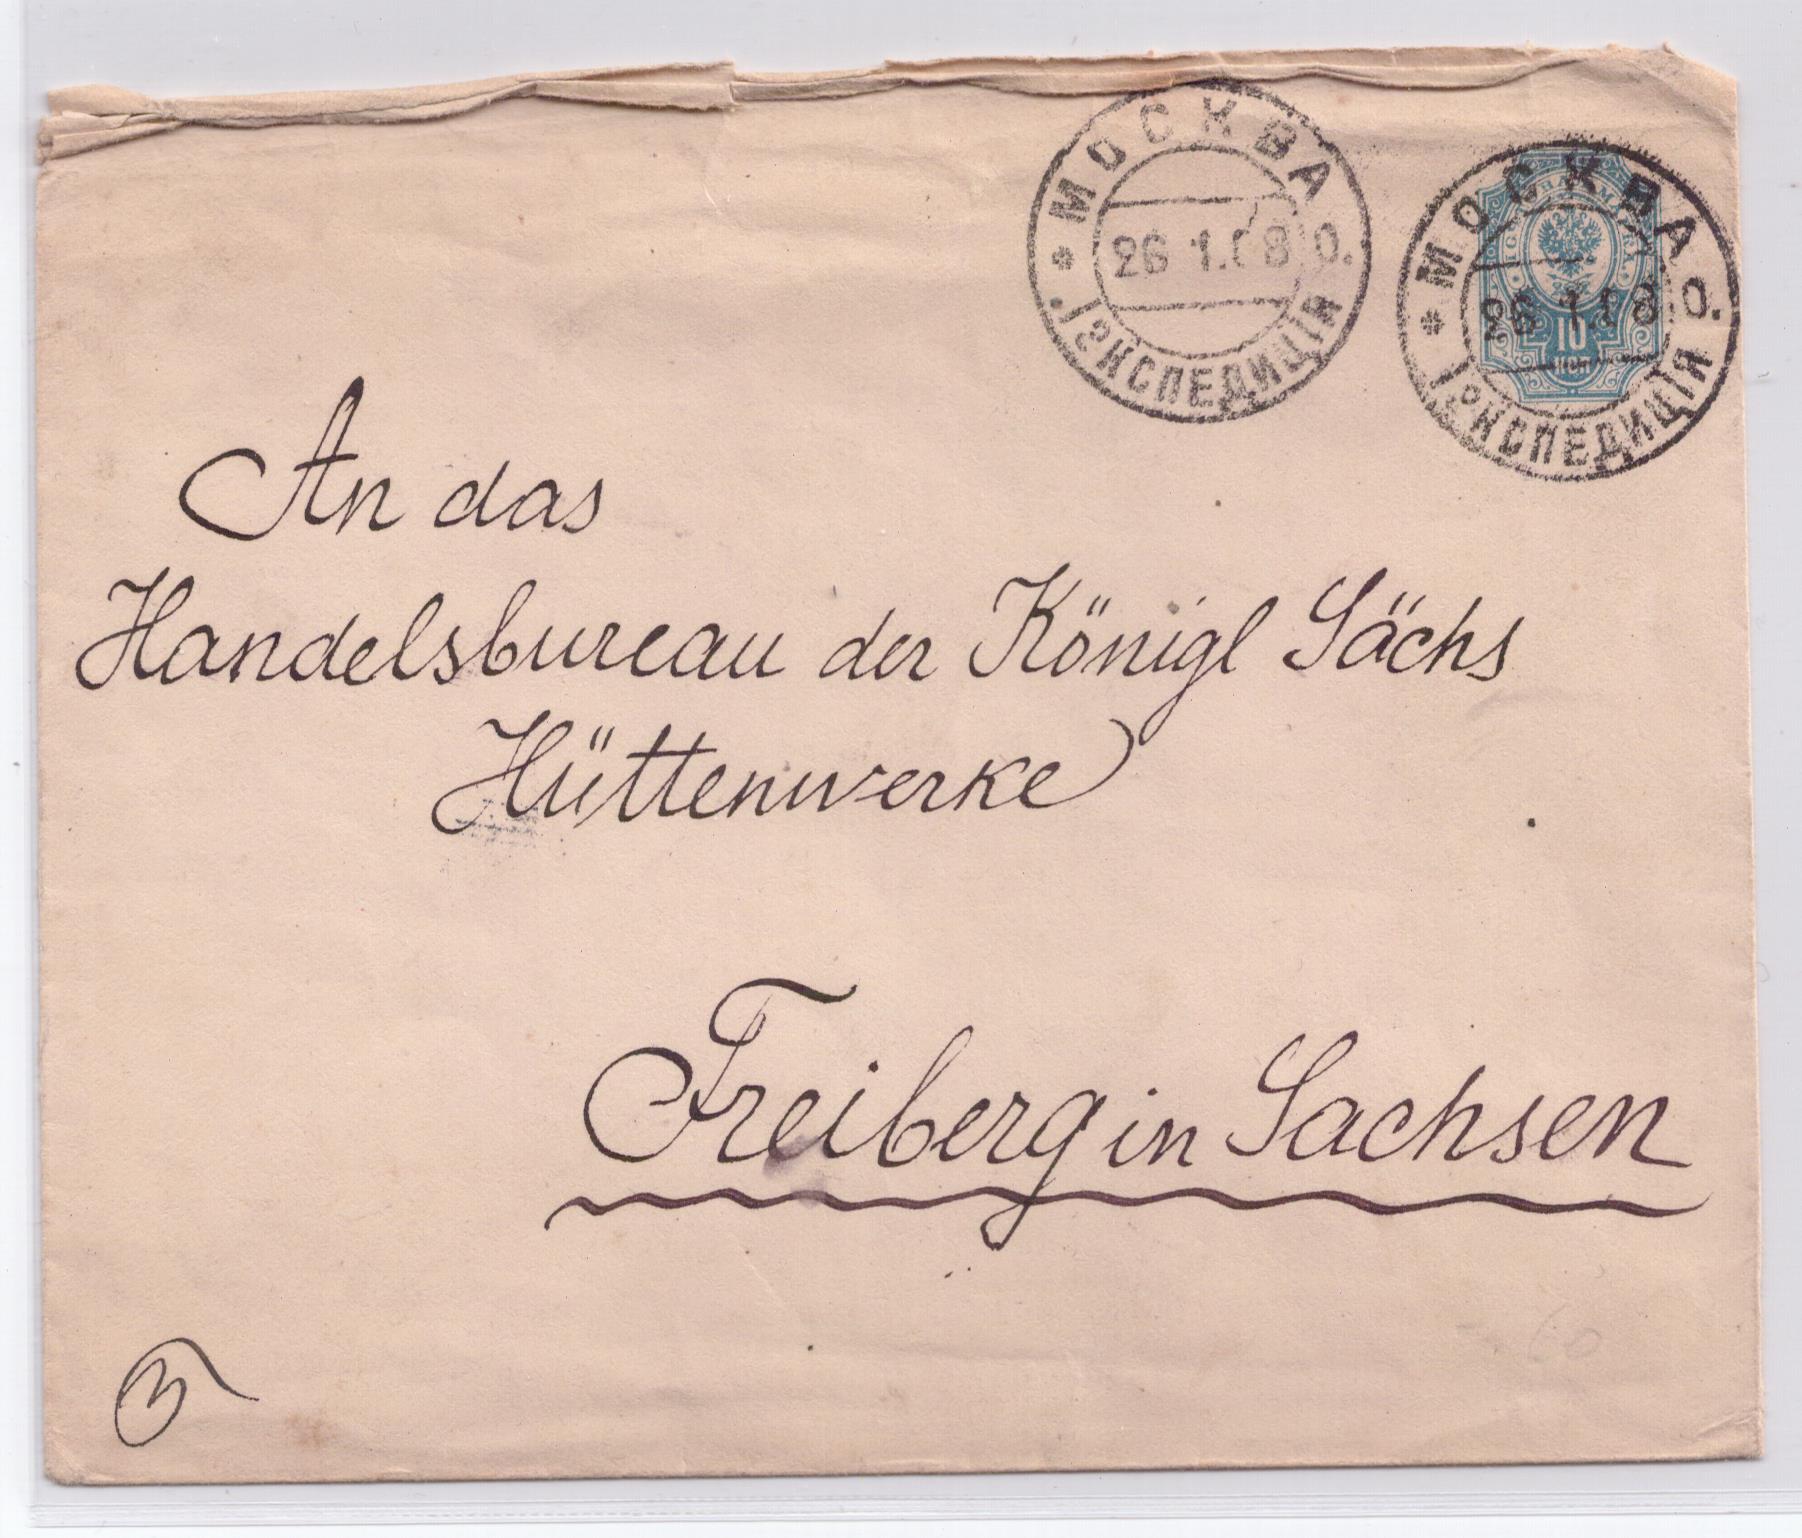 МОСКВА
26.1.08
I ЭКСПЕДИЦІЯ О.
МОСКВА
26.1.08
I ЭКСПЕДИЦІЯ О.
МАРКА
10
КОП
An das
Handelsbureau der Königl Sächs
Hüttenwerke
Freiberg in Sachsen
60